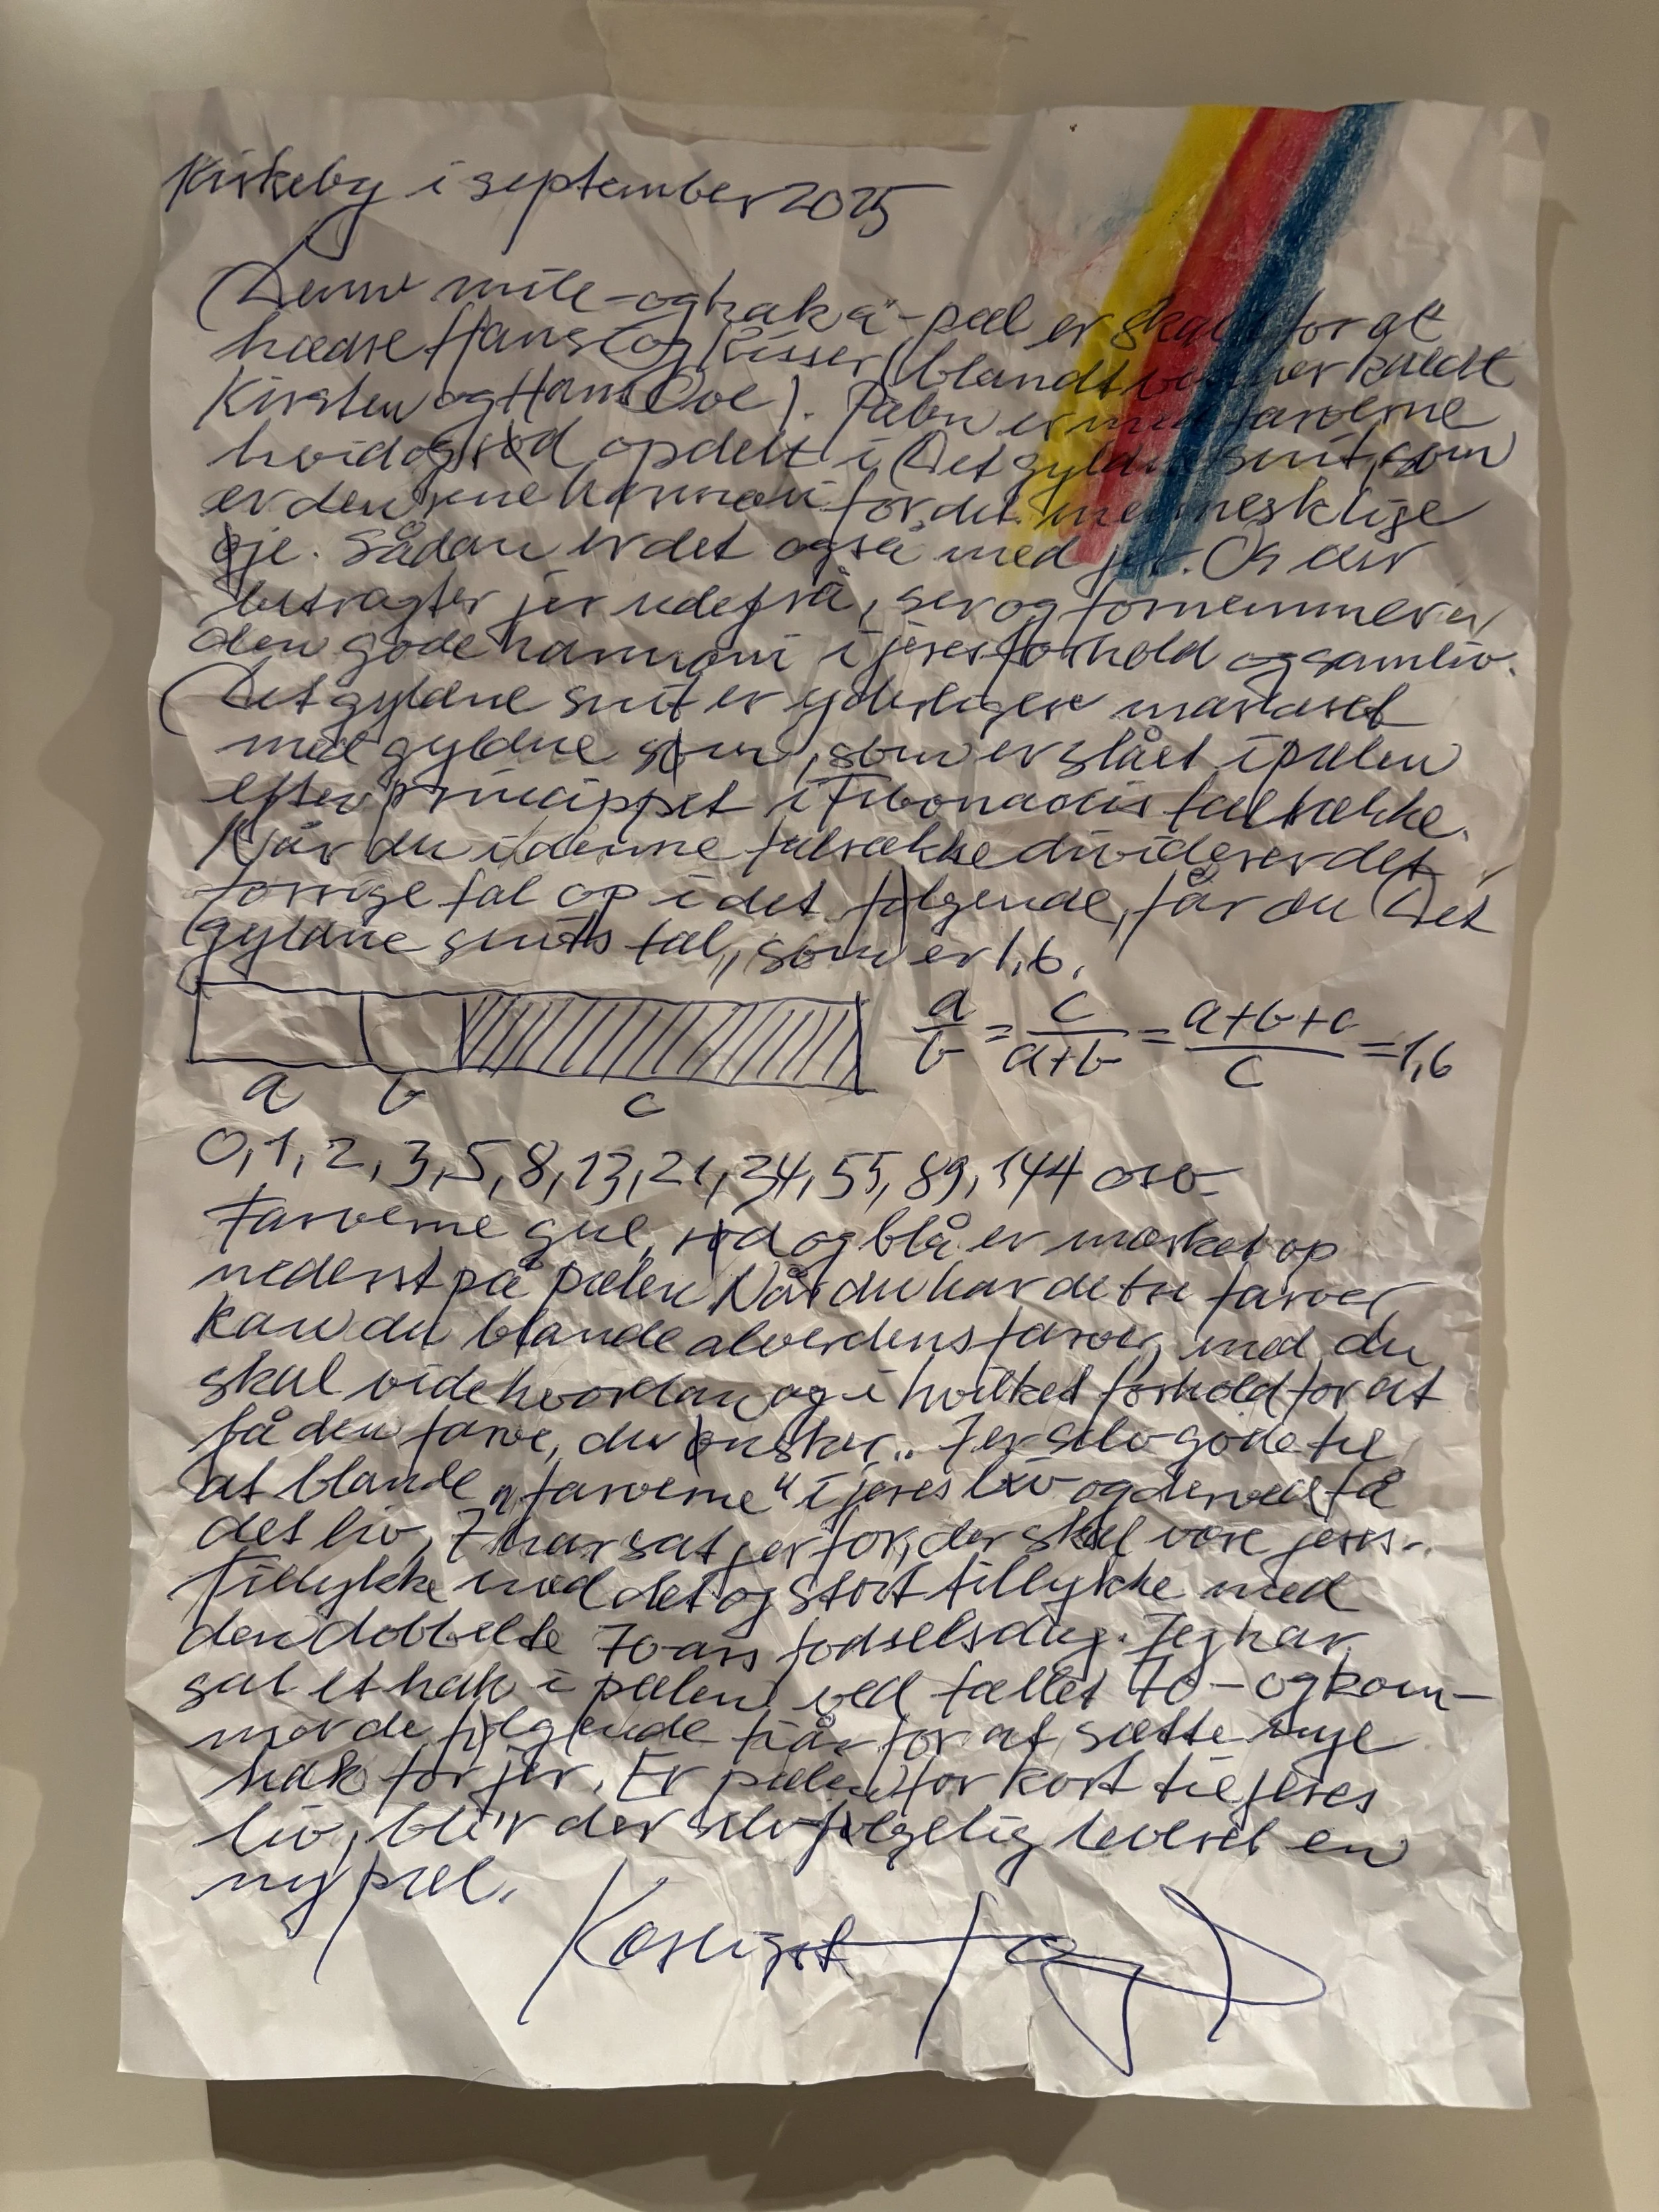 Kirkeby i september 2025
Denne mile- og hak"-pæl er skabt for at
hædre Hanse og Kisser (blandt venner kaldt
Kirsten og Hans Ove). Pælen er med farverne
hvid og rød opdelt i Det gyldne snit, som
er den rene harmoni for det menneskelige
øje. Sådan er det også med jer. Os der
betragter jer udefra, ser og fornemmer
den gode harmoni i jeres forhold og samliv.
Det gyldne snit er yderligere markeret
med gyldne søm, som er slået i pælen
efter princippet i Fibonaccis talrække.
Når du i denne talrække dividerer det
forrige tal op i det følgende, får du Det
gyldne snits tal, som er 1,6.
a/b = c/a+b = a+b+c/c = 1,6
a b c
0, 1, 2, 3, 5, 8, 13, 21, 34, 55, 89, 144 osv.
Farverne gul, rød og blå er mærket op
nederst på pælen. Når du har de tre farver,
kan du blande alverdens farver, med du
skal vide hvordan og i hvilket forhold for at
få den farve, du ønsker. I er selv gode til
at blande "farverne" i jeres liv og derved få
det liv, I har sat jer for, der skal være jeres.
Tillykke med det og stort tillykke med
den dobbelte 70-års fødselsdag. Jeg har
sat et hak i pælen ved tallet 70 - og kom-
mer de følgende når for at sætte nye
hak for jer. Er pælen for kort til jeres
liv, bli'r der selvfølgelig leveret en
ny pæl.
Kærligst